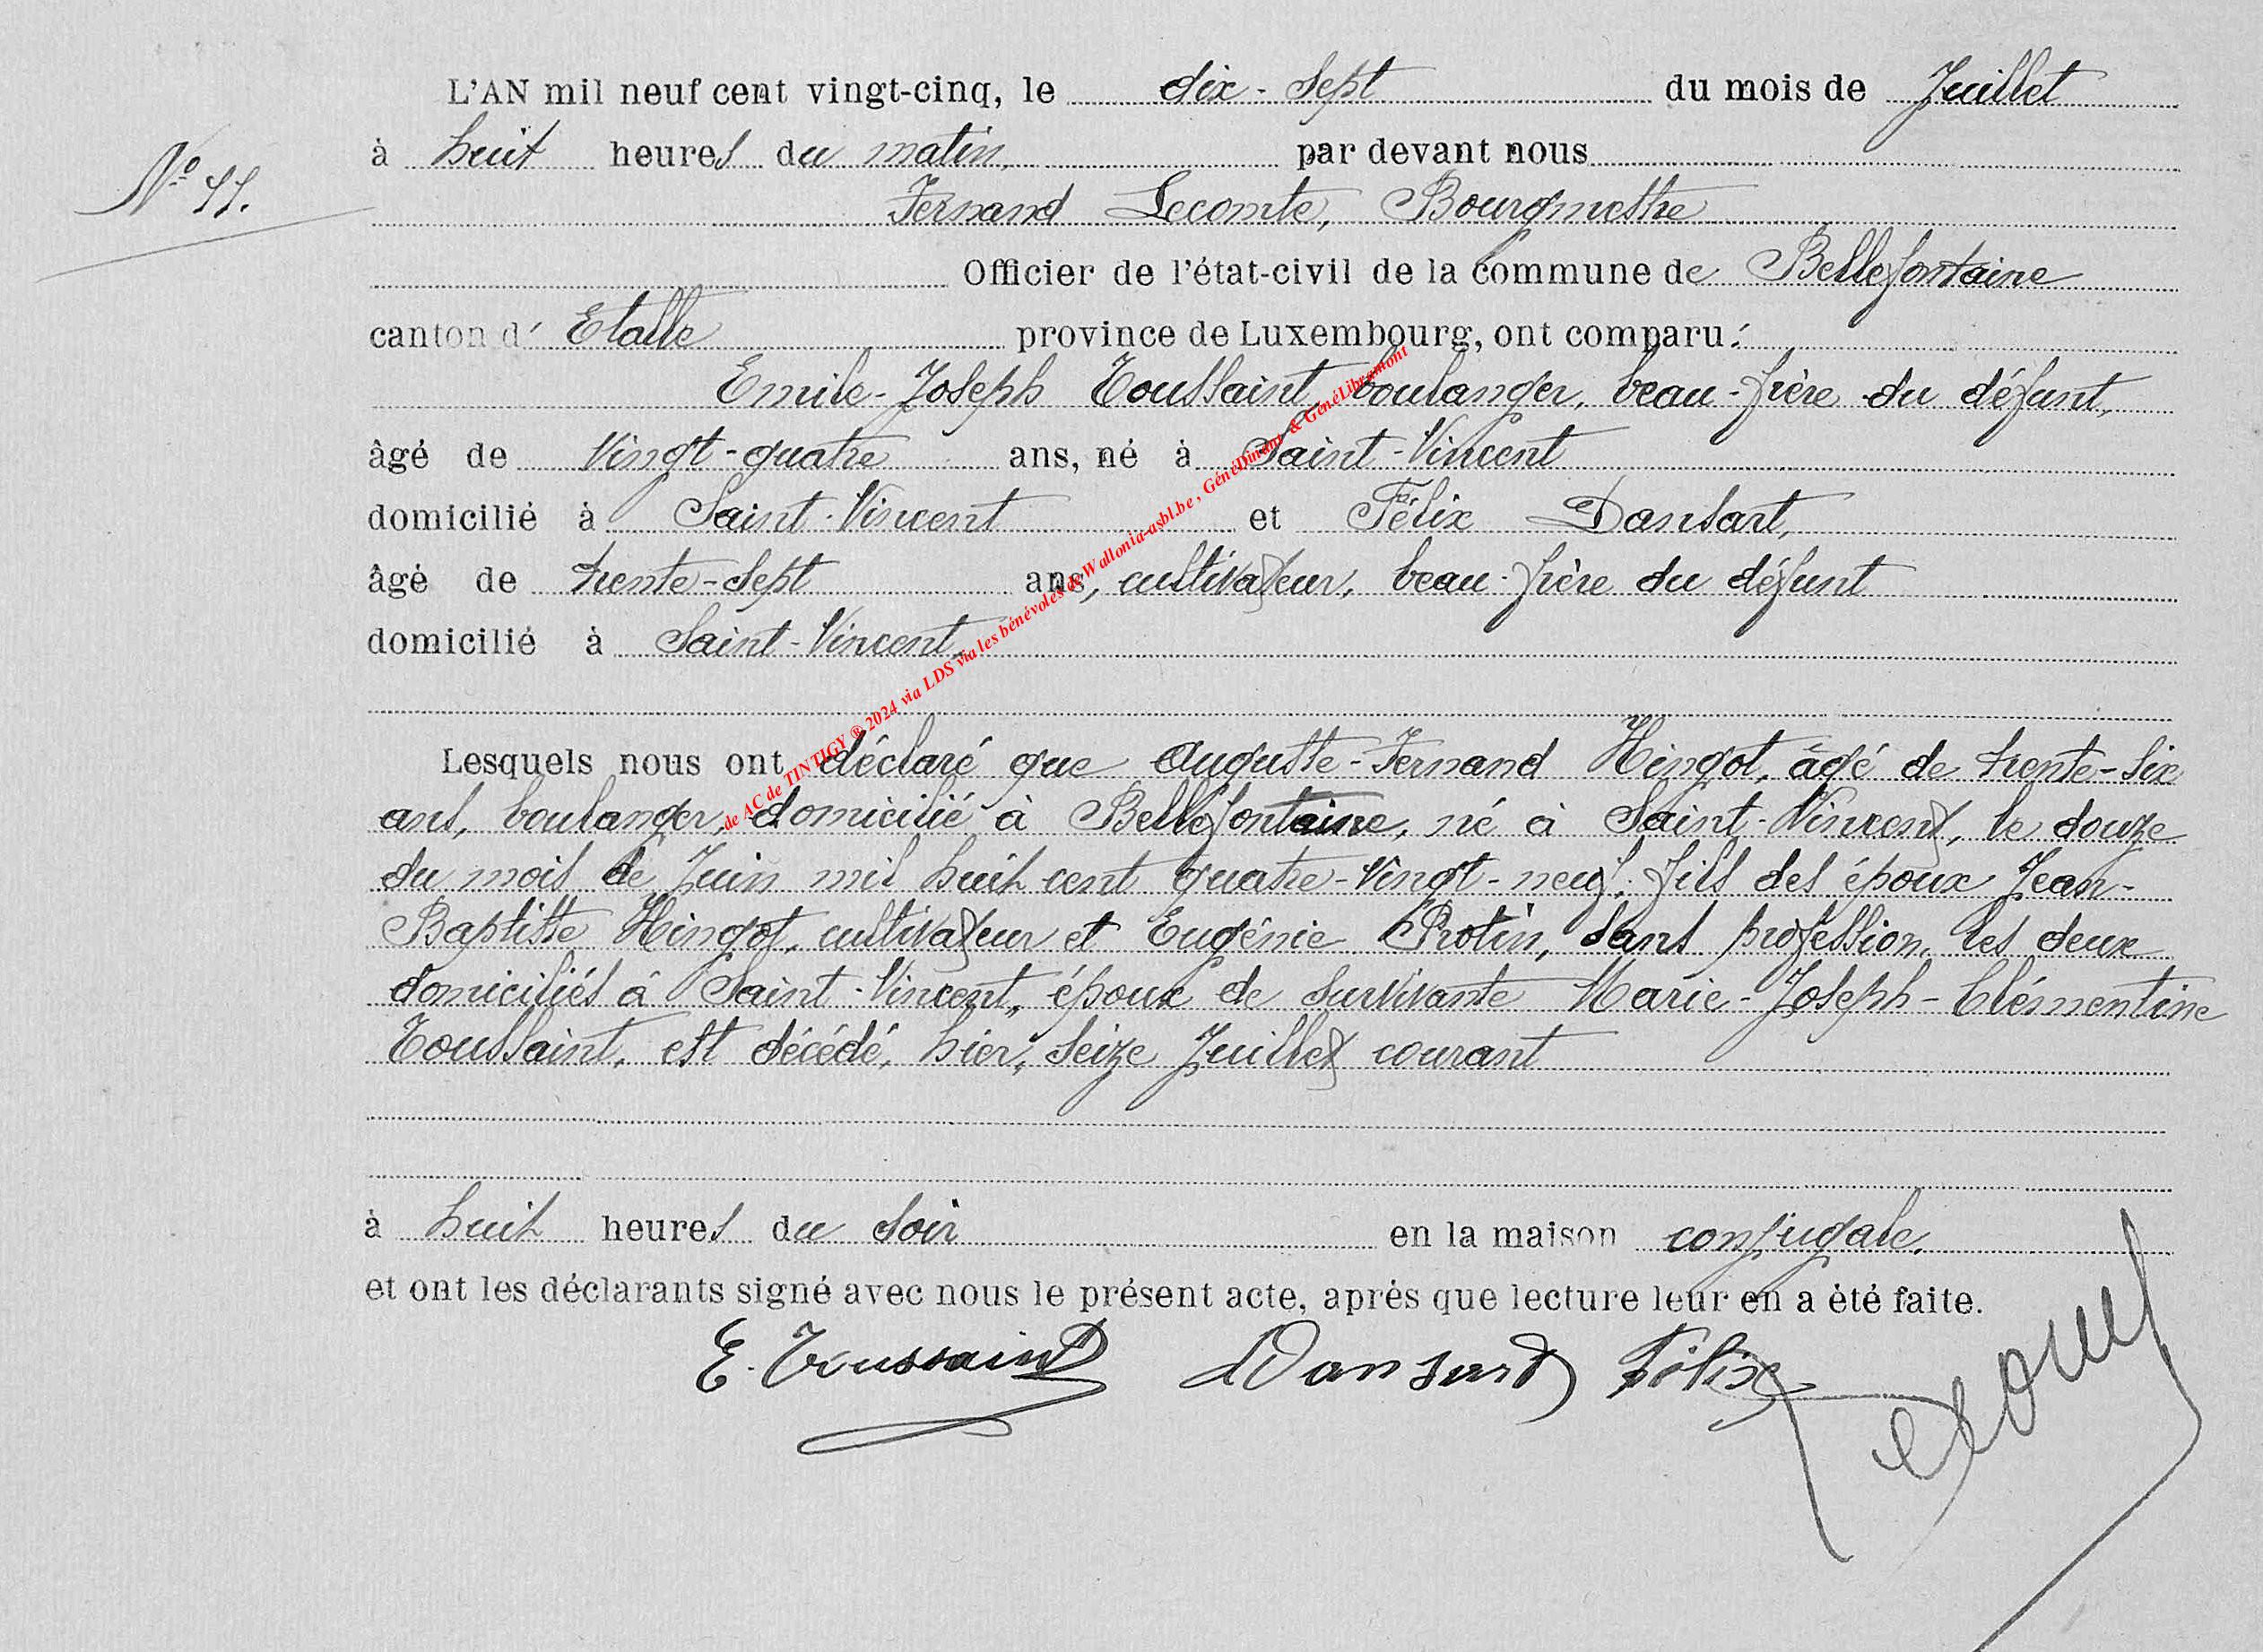 L'AN mil neuf cent vingt-cinq, le dix-sept du mois de Juillet
à huit heures du matin, par devant nous
N° 11.
Fernand Lecomte, Bourgmestre
Officier de l'état-civil de la commune de Bellefontaine
canton d' Etalle province de Luxembourg, ont comparu:
Emile-Joseph Toussaint, boulanger, beau-frère du défunt,
âgé de vingt-quatre ans, né à Saint-Vincent
domicilié à Saint-Vincent et Félix Dansart,
âgé de trente-sept ans, cultivateur, beau-frère du défunt
domicilié à Saint-Vincent,
Lesquels nous ont déclaré que Auguste-Fernand Hingot, âgé de trente-six
ans, boulanger, domicilié à Bellefontaine, né à Saint-Vincent, le douze
du mois de Juin mil huit cent quatre-vingt-neuf, fils des époux Jean-
Baptiste Hingot, cultivateur et Eugénie Protin, sans profession, les deux
domiciliés à Saint-Vincent, époux de survivante Marie-Joseph-Clémentine
Toussaint, est décédé, hier, seize Juillet courant
à huit heures du soir en la maison conjugale.
et ont les déclarants signé avec nous le présent acte, après que lecture leur en a été faite.
E. Toussaint Dansart Félix
de AC de TINTIGY ® 2024 via LDS via les bénévoles de Wallonia-asbl.be, GénéDinant & GénéLibramont